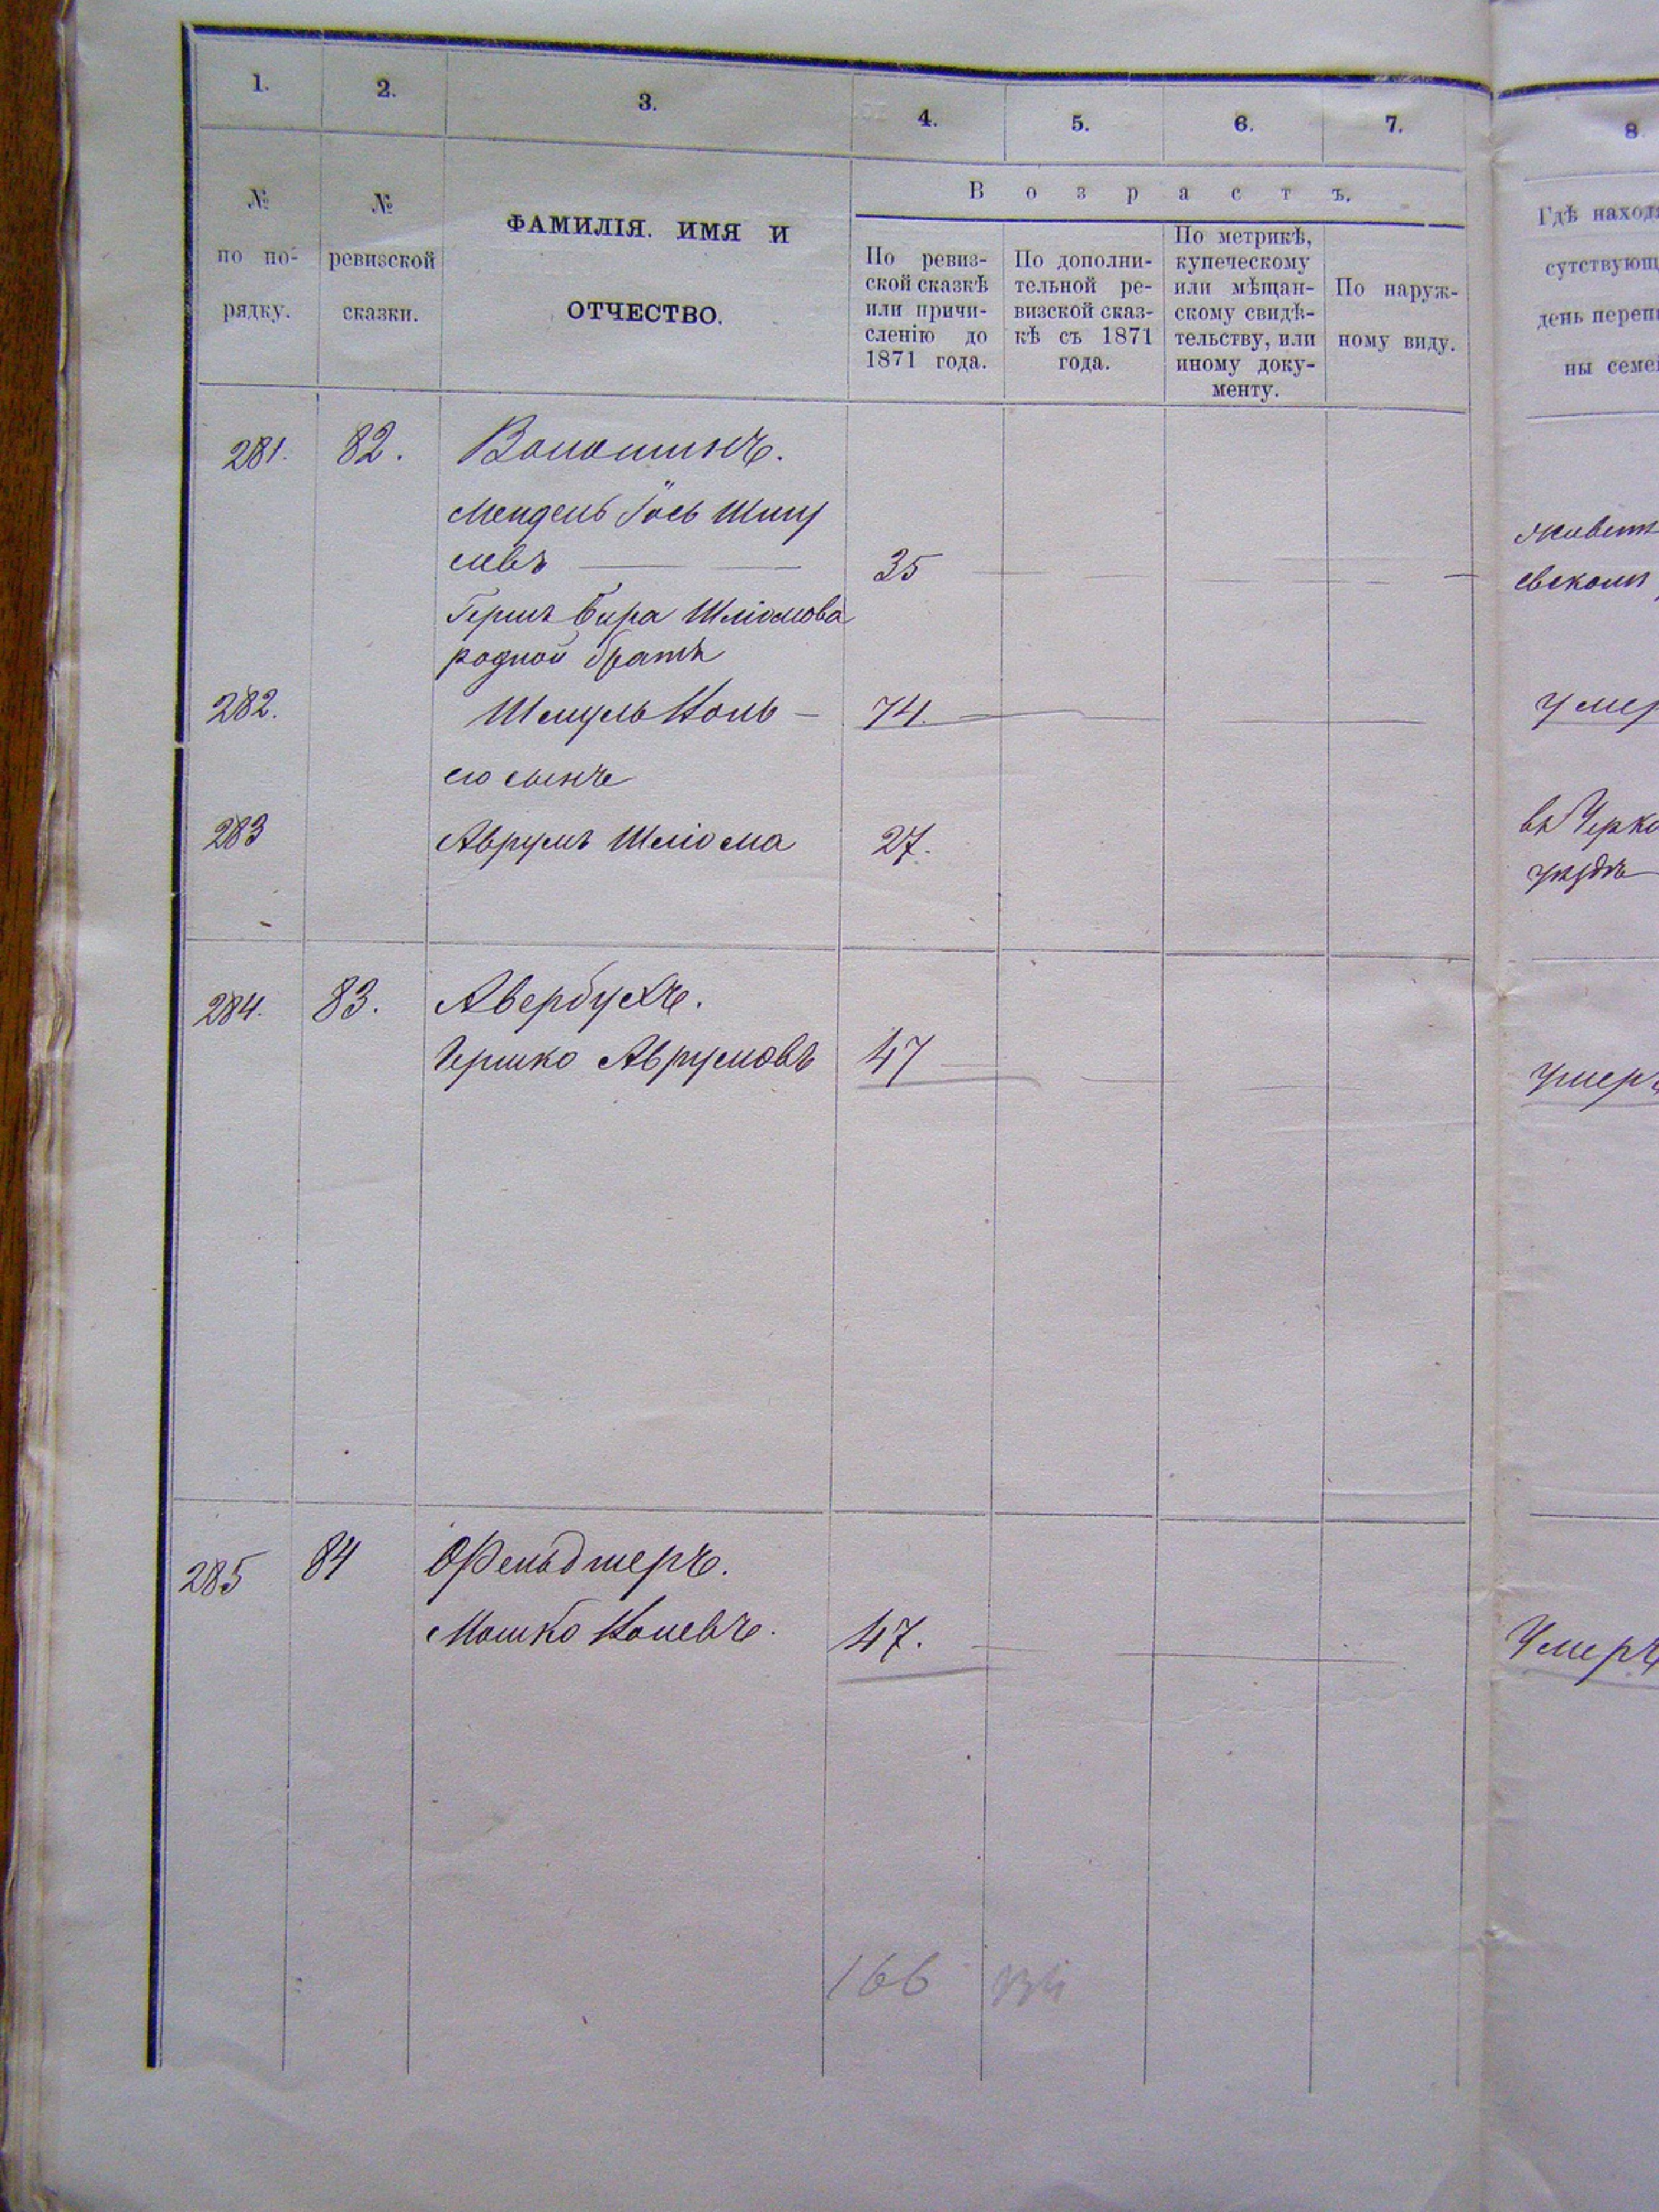 1. 2. 3. 4. 5. 6. 7. 8
В о з р а с т ъ.
№ по по-рядку.
№ ревизской сказки.
ФАМИЛІЯ. ИМЯ И
ОТЧЕСТВО.
По ревиз-
ской сказкѣ
или причи-
сленію до
1871 года.
По дополни-
тельной ре-
визской сказ-
кѣ съ 1871
года.
По метрикѣ,
купеческому
или мѣщан-
скому свидѣ-
тельству, или
иному доку-
менту.
По наруж-
ному виду.
Гдѣ наход
сутствующ
день переп
ны семе
281. 82. Волошинъ.
Мендель Іось Шму
левъ 35
Гершъ Бера Шліомова
родной братъ
282. Шмуль Коль 74. Умер
его сынъ
283 Аврумъ Шліома 27. въ Черка
уѣздѣ
284. 83. Авербухъ.
Гершко Аврумовъ 47 Умеръ
285 84 Фельдшеръ.
Мошко Колевъ. 47. Умеръ
166